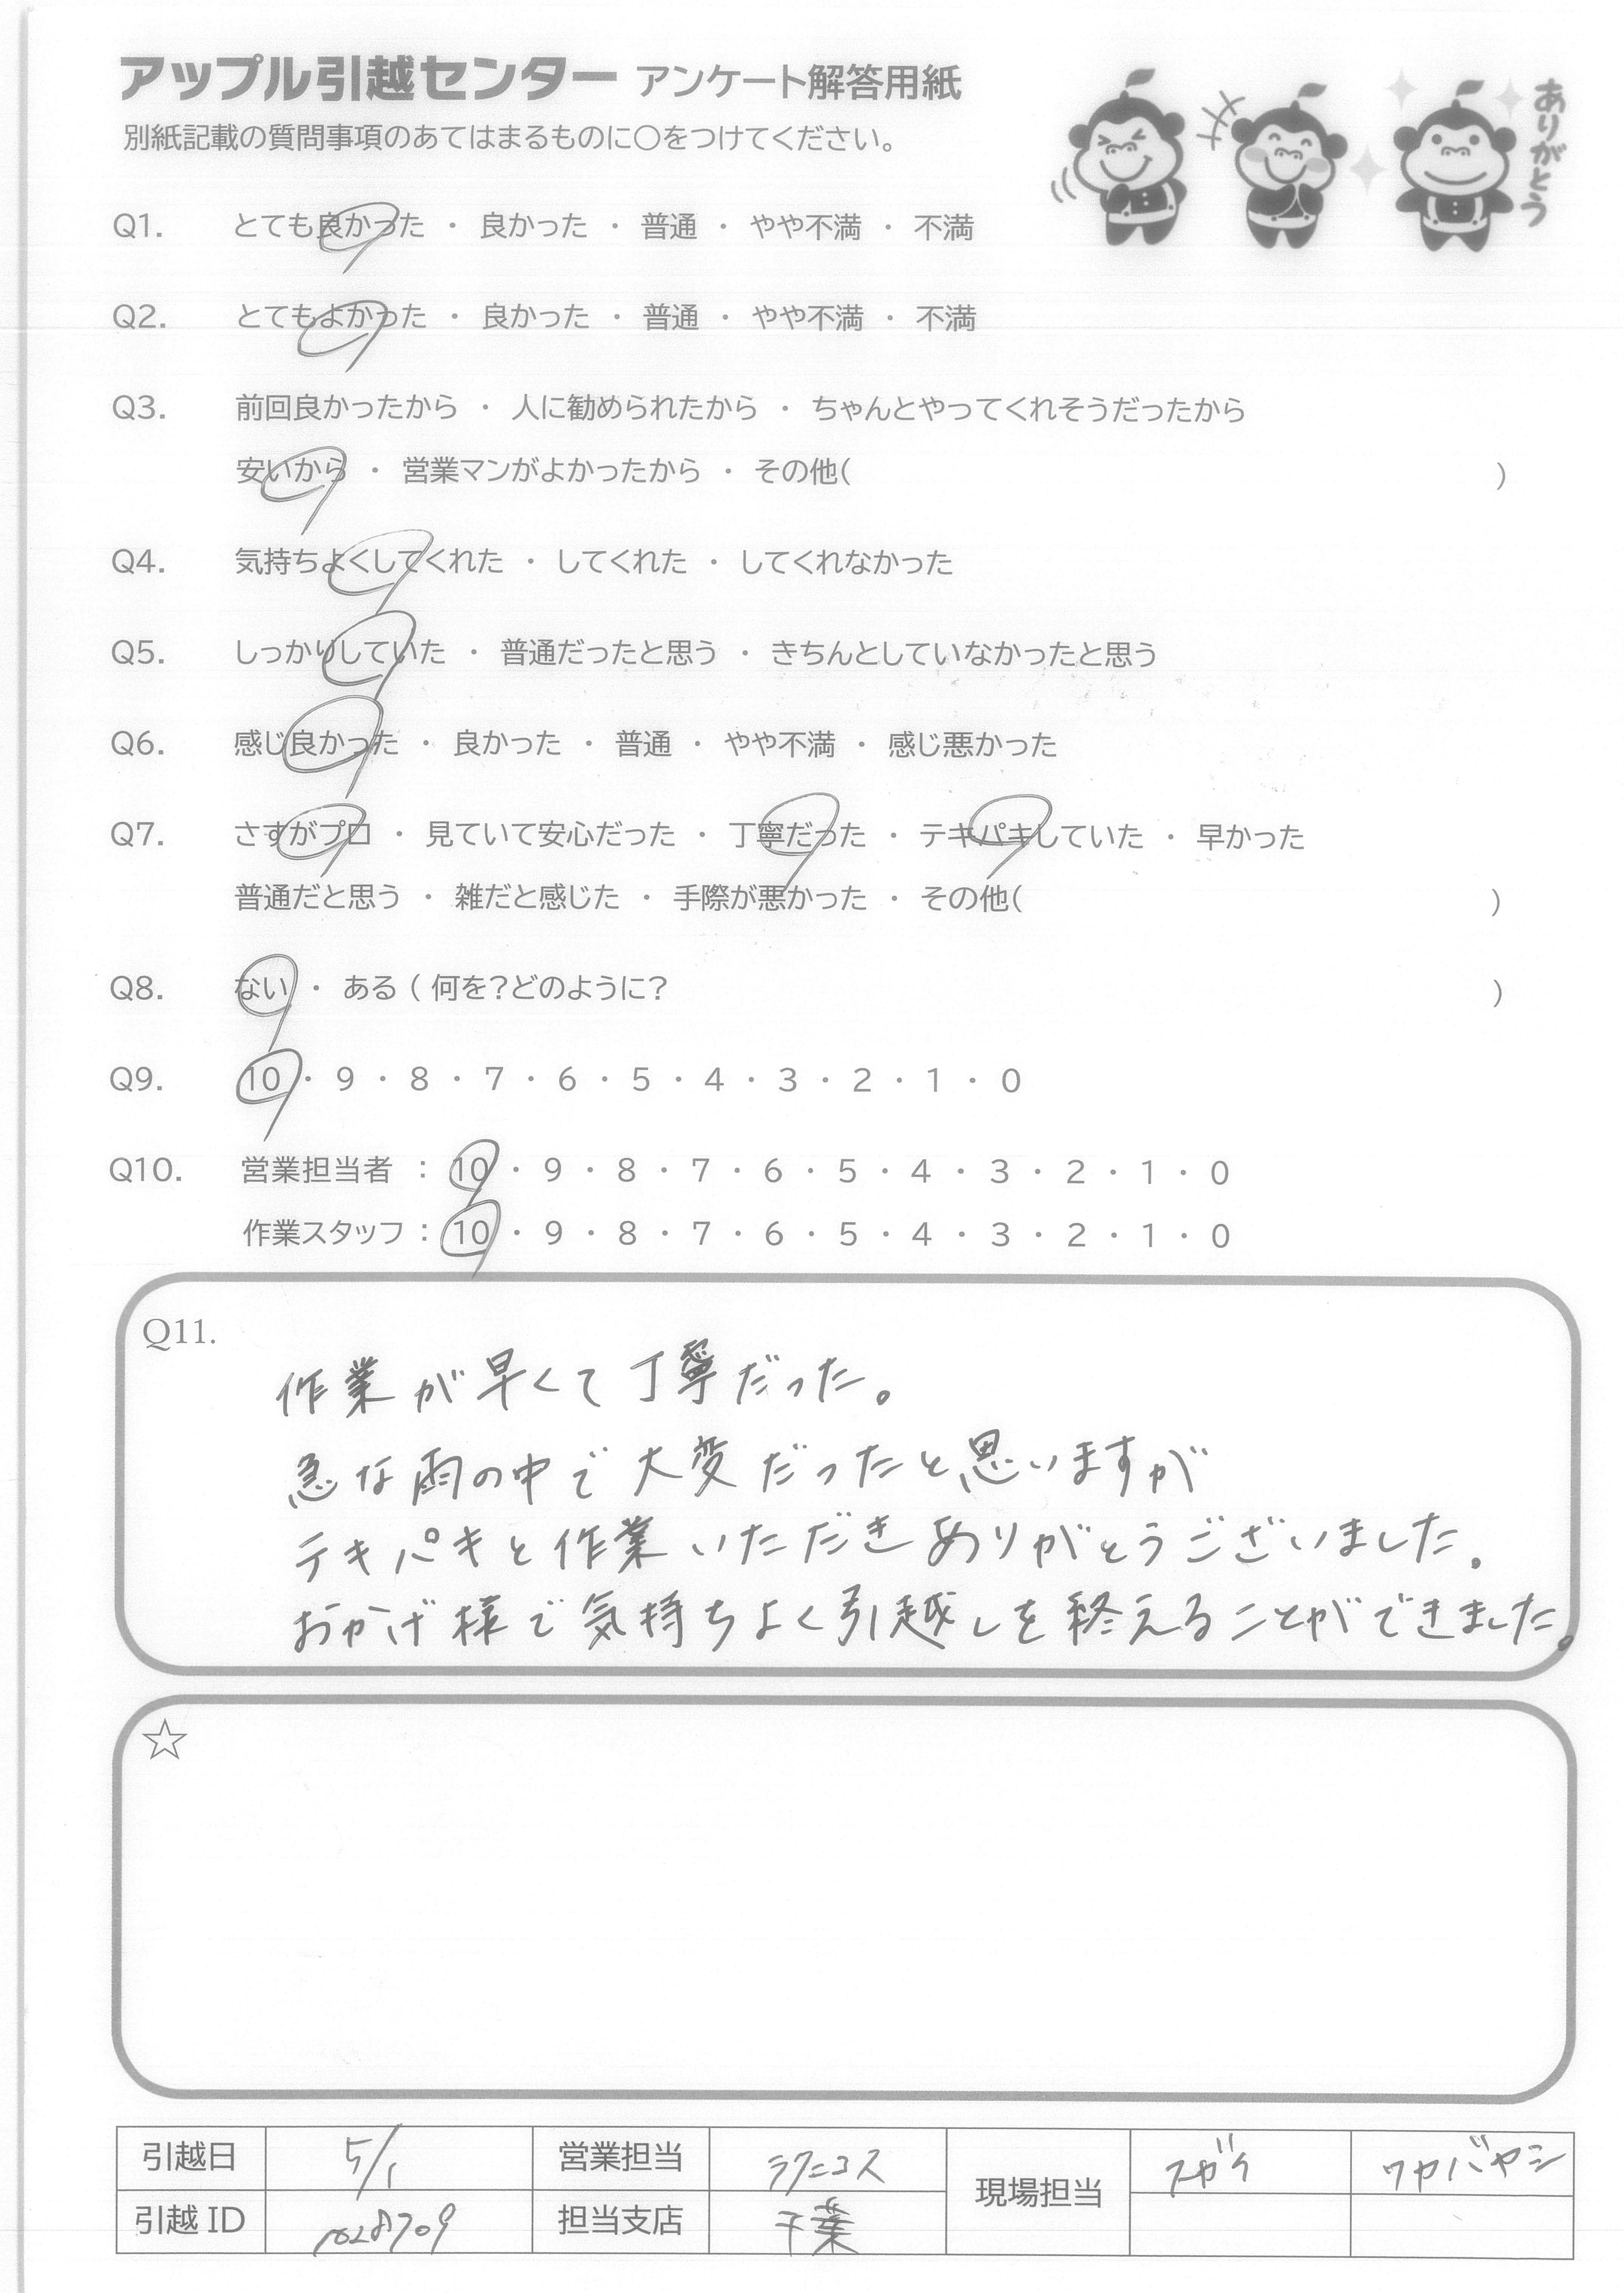 アップル引越センター アンケート解答用紙
別紙記載の質問事項のあてはまるものに○をつけてください。
ありがとう
Q1. とても良かった ・ 良かった ・ 普通 ・ やや不満 ・ 不満
Q2. とてもよかった ・ 良かった ・ 普通 ・ やや不満 ・ 不満
Q3. 前回良かったから ・ 人に勧められたから ・ ちゃんとやってくれそうだったから
安いから ・ 営業マンがよかったから ・ その他( )
Q4. 気持ちよくしてくれた ・ してくれた ・ してくれなかった
Q5. しっかりしていた ・ 普通だったと思う ・ きちんとしていなかったと思う
Q6. 感じ良かった ・ 良かった ・ 普通 ・ やや不満 ・ 感じ悪かった
Q7. さすがプロ ・ 見ていて安心だった ・ 丁寧だった ・ テキパキしていた ・ 早かった
普通だと思う ・ 雑だと感じた ・ 手際が悪かった ・ その他( )
Q8. ない ・ ある ( 何を?どのように? )
Q9. 10 ・ 9 ・ 8 ・ 7 ・ 6 ・ 5 ・ 4 ・ 3 ・ 2 ・ 1 ・ 0
Q10. 営業担当者 : 10 ・ 9 ・ 8 ・ 7 ・ 6 ・ 5 ・ 4 ・ 3 ・ 2 ・ 1 ・ 0
作業スタッフ : 10 ・ 9 ・ 8 ・ 7 ・ 6 ・ 5 ・ 4 ・ 3 ・ 2 ・ 1 ・ 0
Q11.
作業が早くて丁寧だった。
急な雨の中で大変だったと思いますが
テキパキと作業いただきありがとうございました。
おかげ様で気持ちよく引越しを終えることができました。
☆
引越日 5/1 営業担当 現場担当 スガケ ワカバヤシ
引越ID 1028709 担当支店 千葉